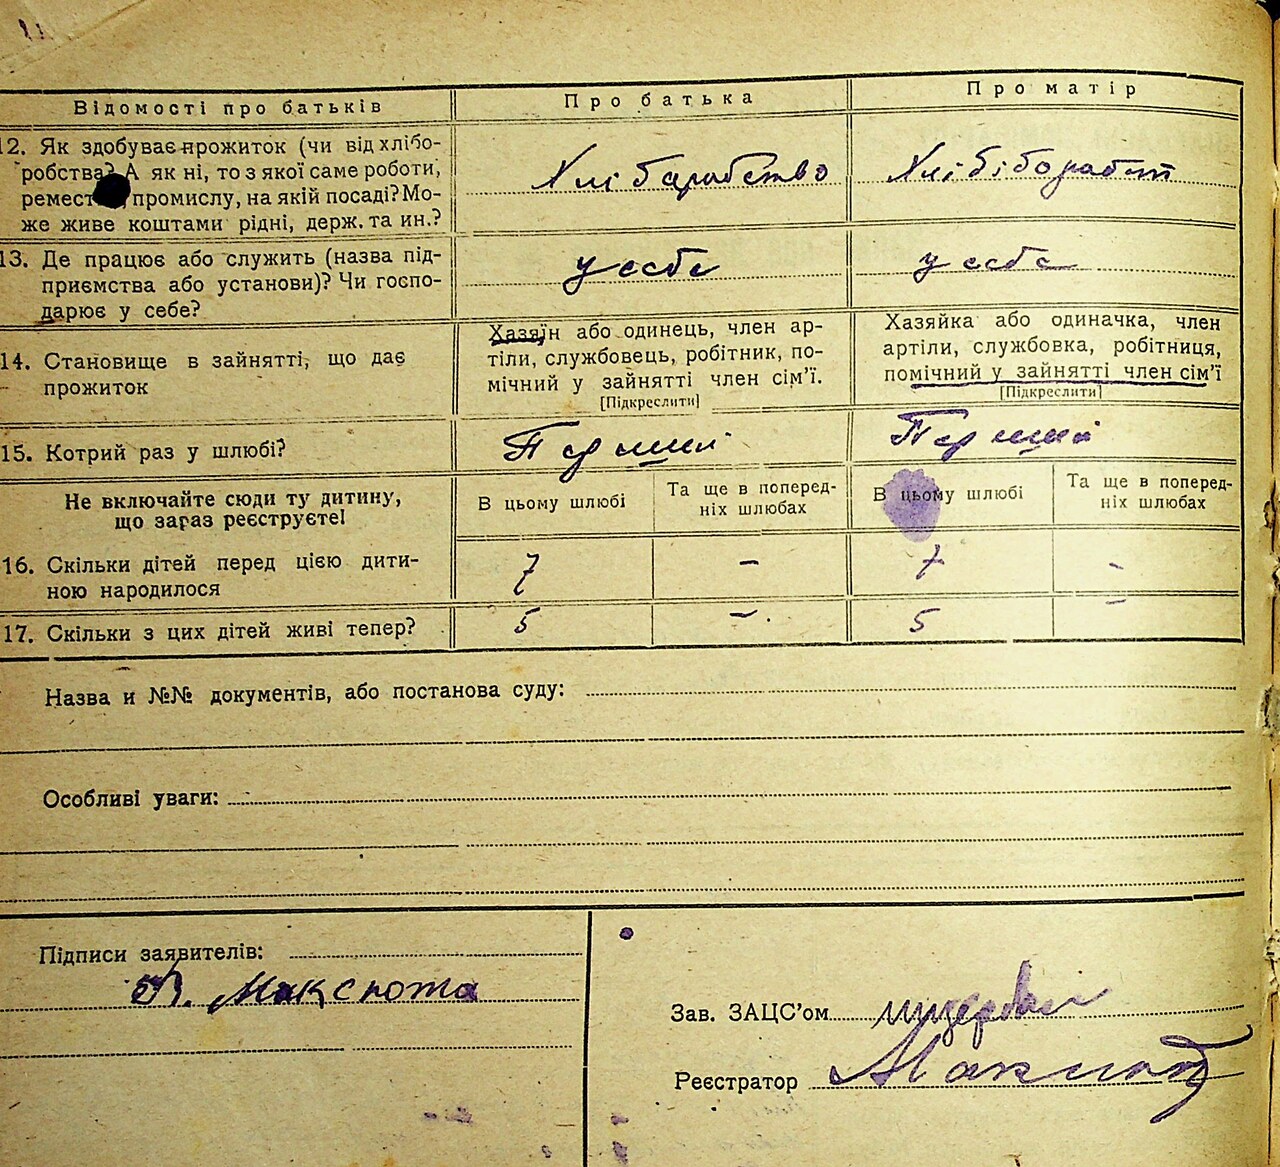 Відомості про батьків
Про батька
Про матір
12. Як здобуває прожиток (чи від хлібо-
робства? А як ні, то з якої саме роботи,
ремест , промислу, на якій посаді? Мо-
же живе коштами рідні, держ. та ин.?
Хлібаробство
Хлібіборобст
13. Де працює або служить (назва під-
приємства або установи)? Чи госпо-
дарює у себе?
у себе
у себе
14. Становище в зайнятті, що дає
прожиток
Хазяїн або одинець, член ар-
тіли, службовець, робітник, по-
мічний у зайнятті член сім'ї.
[Підкреслити]
Хазяйка або одиначка, член
артіли, службовка, робітниця,
помічний у зайнятті член сім'ї
[Підкреслити]
15. Котрий раз у шлюбі?
Перший
Перший
Не включайте сюди ту дитину,
що зараз реєструєте!
В цьому шлюбі
Та ще в поперед-
ніх шлюбах
В цьому шлюбі
Та ще в поперед-
ніх шлюбах
16. Скільки дітей перед цією дити-
ною народилося
7 – 7 -
17. Скільки з цих дітей живі тепер?
5 – 5 –
Назва и №№ документів, або постанова суду:
Особливі уваги:
Підписи заявителів:
Зав. ЗАЦС'ом
Реєстратор